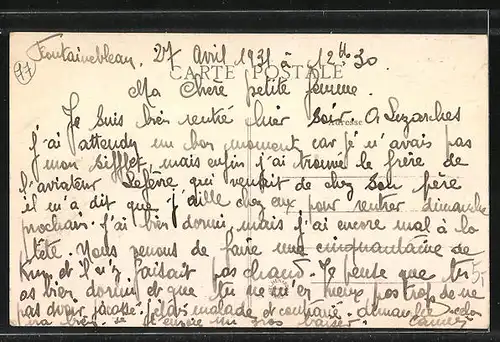 77
Fontainebleau, 27 Avril 1931 à 12h30
CARTE POSTALE
Ma Chère petite femme.
Je suis bien rentré hier soir. A Luzarches
j'ai attendu un bon moment car je n'avais pas
mon sifflet, mais enfin j'ai trouvé le frère de
l'aviateur Lefèvre qui venait de chez son père
il m'a dit que j'aille chez eux pour rentrer dimanche
prochain. J'ai bien dormi, mais j'ai encore mal à la
tête. Nous venons de faire une cinquantaine de
Km et il n'y faisait pas chaud. Je pense que tu
as bien dormi et que tu ne m'en veux pas trop de ne
pas avoir j'étais malade et contrarié. dimanche
encore un gros baiser.